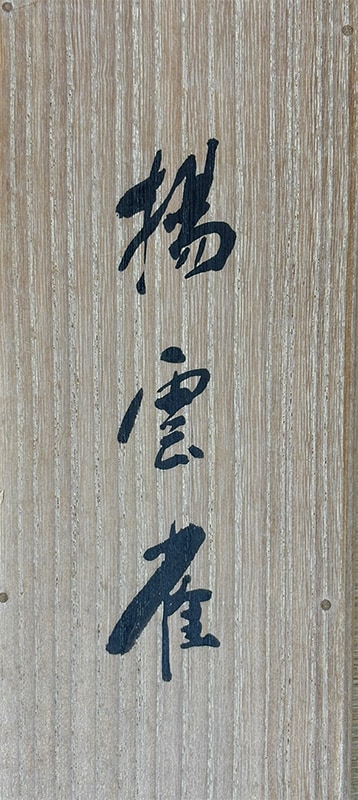 揚雲雀